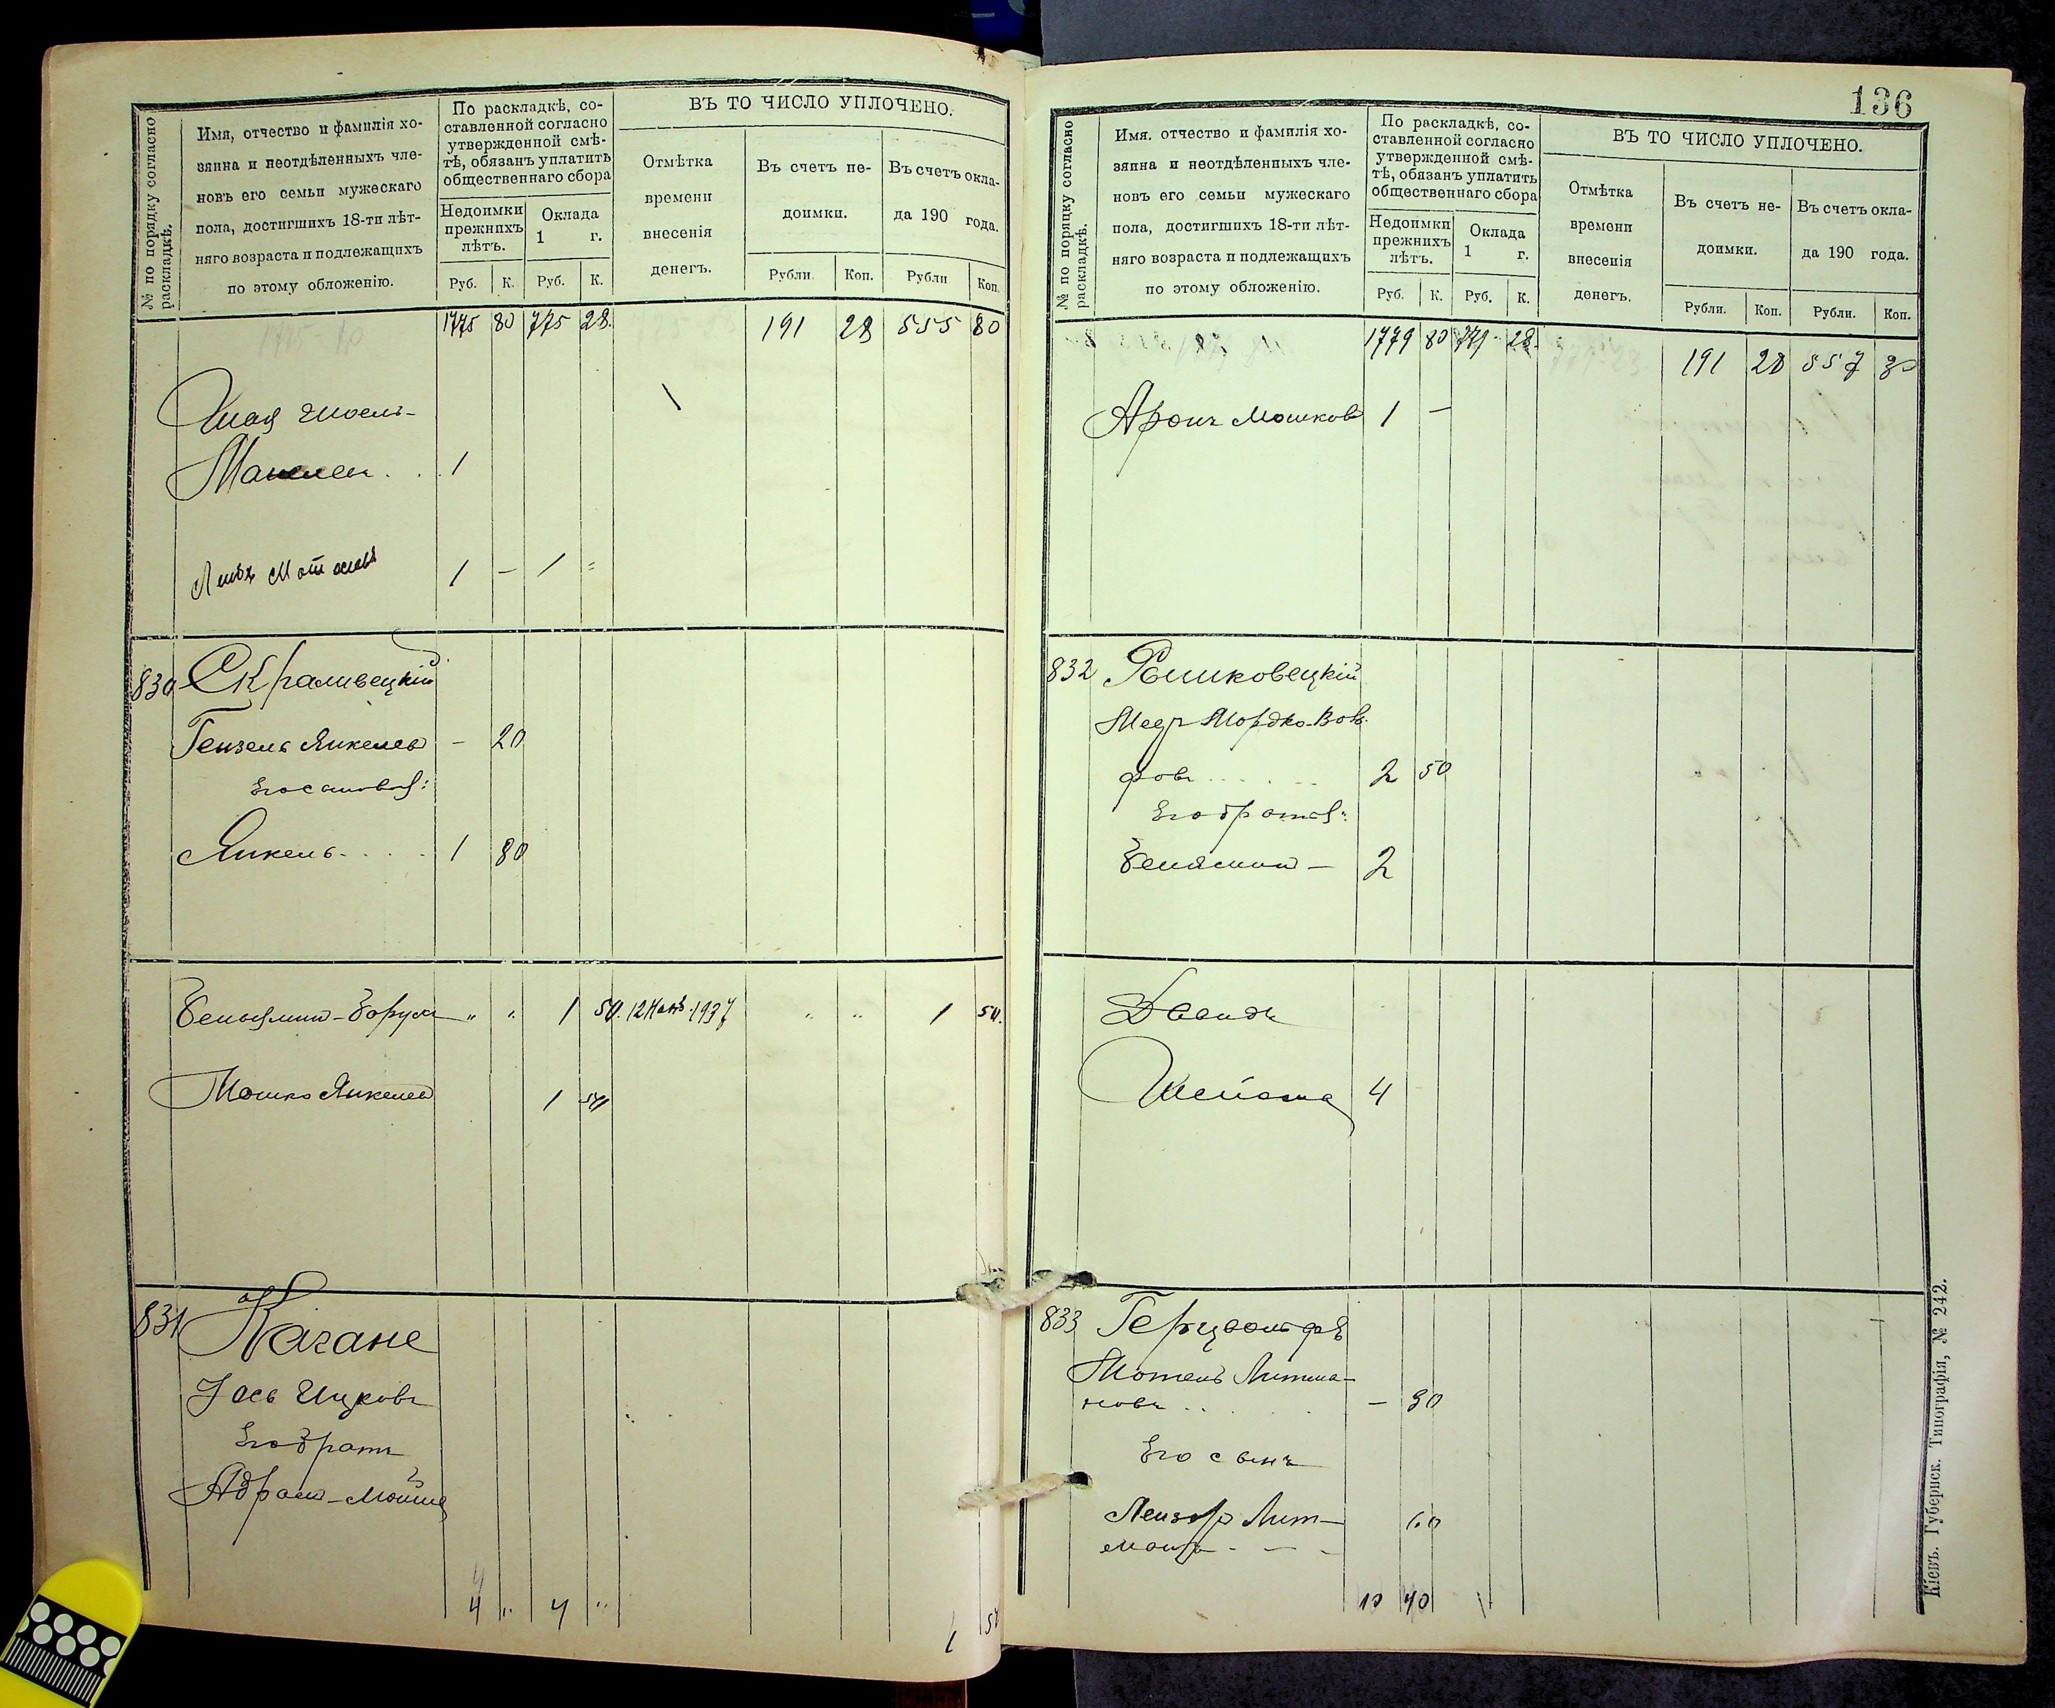 № по порядку согласно раскладкѣ.
Имя, отчество и фамилія хо-
зяина и неотдѣленныхъ чле-
новъ его семьи мужескаго
пола, достигшихъ 18-ти лѣт-
няго возраста и подлежащихъ
по этому обложенію.
По раскладкѣ, со-
ставленной согласно
утвержденной смѣ-
тѣ, обязанъ уплатить
общественнаго сбора
Недоимки прежнихъ лѣтъ.
Оклада 1 г.
Руб. К. Руб. К.
ВЪ ТО ЧИСЛО УПЛОЧЕНО.
Отмѣтка
времени
внесенія
денегъ.
Въ счетъ не-
доимки.
Въ счетъ окла-
да 190 года.
Рубли. Коп. Рубли Коп.
1775 80 775 28. 191 28 555 80
Шая
1
1 — 1 =
830 Скраливецкій
Гензель Янкелев — 20
Его сыновья:
Янкель 1 80
Беньямин-Борух " " 1 50. 1 50.
Мошко Янкелев 1 50
831 Кагане
Іось Ицковъ
Его братъ
Абрам-Мойше
4 " 4 " 1 50
136
№ по порядку согласно раскладкѣ.
Имя, отчество и фамилія хо-
зяина и неотдѣленныхъ чле-
новъ его семьи мужескаго
пола, достигшихъ 18-ти лѣт-
няго возраста и подлежащихъ
по этому обложенію.
По раскладкѣ, со-
ставленной согласно
утвержденной смѣ-
тѣ, обязанъ уплатить
общественнаго сбора
Недоимки прежнихъ лѣтъ.
Оклада 1 г.
Руб. К. Руб. К.
ВЪ ТО ЧИСЛО УПЛОЧЕНО.
Отмѣтка
времени
внесенія
денегъ.
Въ счетъ не-
доимки.
Въ счетъ окла-
да 190 года.
Рубли. Коп. Рубли. Коп.
1779 80 779 28. 191 28 557 30
Аронъ Мошков 1 —
832 Яшковецкій
Меер Мордко-Воль-
фовъ 2 50
Его братья:
Бенямин — 2
Давидъ
4
833 Герцвольфъ
Мотель Литма-
новъ — 30
Его сынъ
Лейзер Лит-
60
10 40
Кіевъ. Губернск. Типографія, № 242.